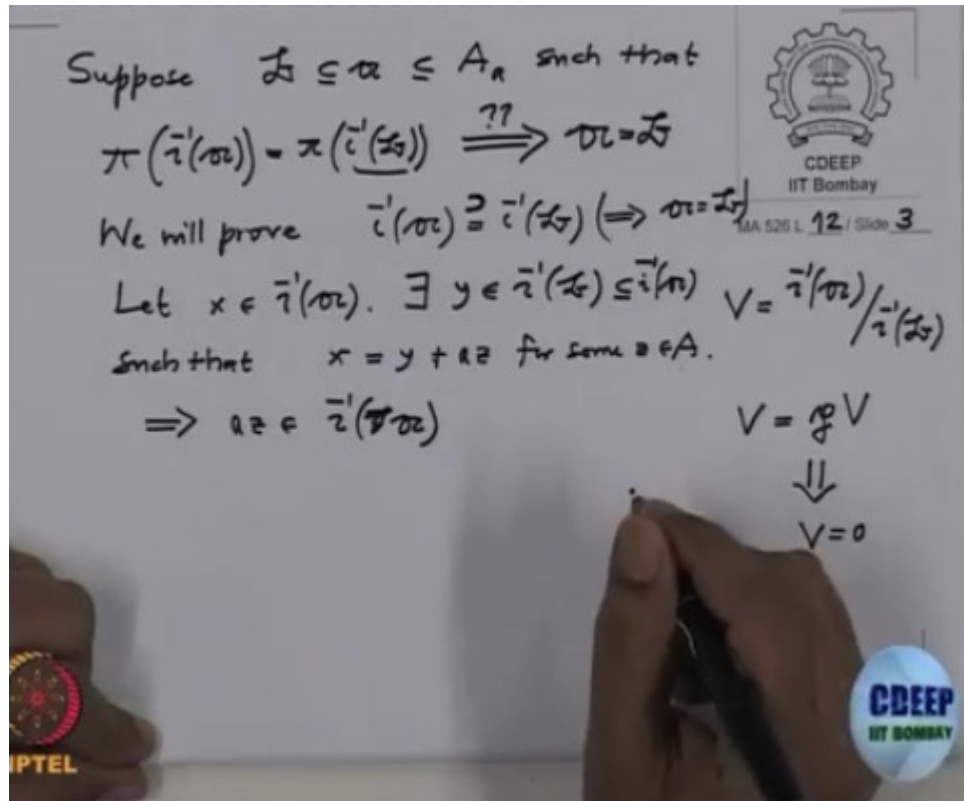 Suppose 𝔟 ⊆ 𝔞 ⊆ A_a such that
π(i⁻¹(𝔞)) = π(i⁻¹(𝔟)) ??⟹ 𝔞 = 𝔟
We will prove i⁻¹(𝔞) ⊇= i⁻¹(𝔟) (⟹ 𝔞 = 𝔟)
Let x ∈ i⁻¹(𝔞). ∃ y ∈ i⁻¹(𝔟) ⊆ i⁻¹(𝔞)
such that x = y + az for some z ∈ A.
⟹ az ∈ i⁻¹(𝔞)
V = i⁻¹(𝔞)/i⁻¹(𝔟)
V = 𝔭V
⇓
V = 0
CDEEP
IIT Bombay
MA 526 L 12 / Slide 3
IPTEL
CDEEP
IIT BOMBAY